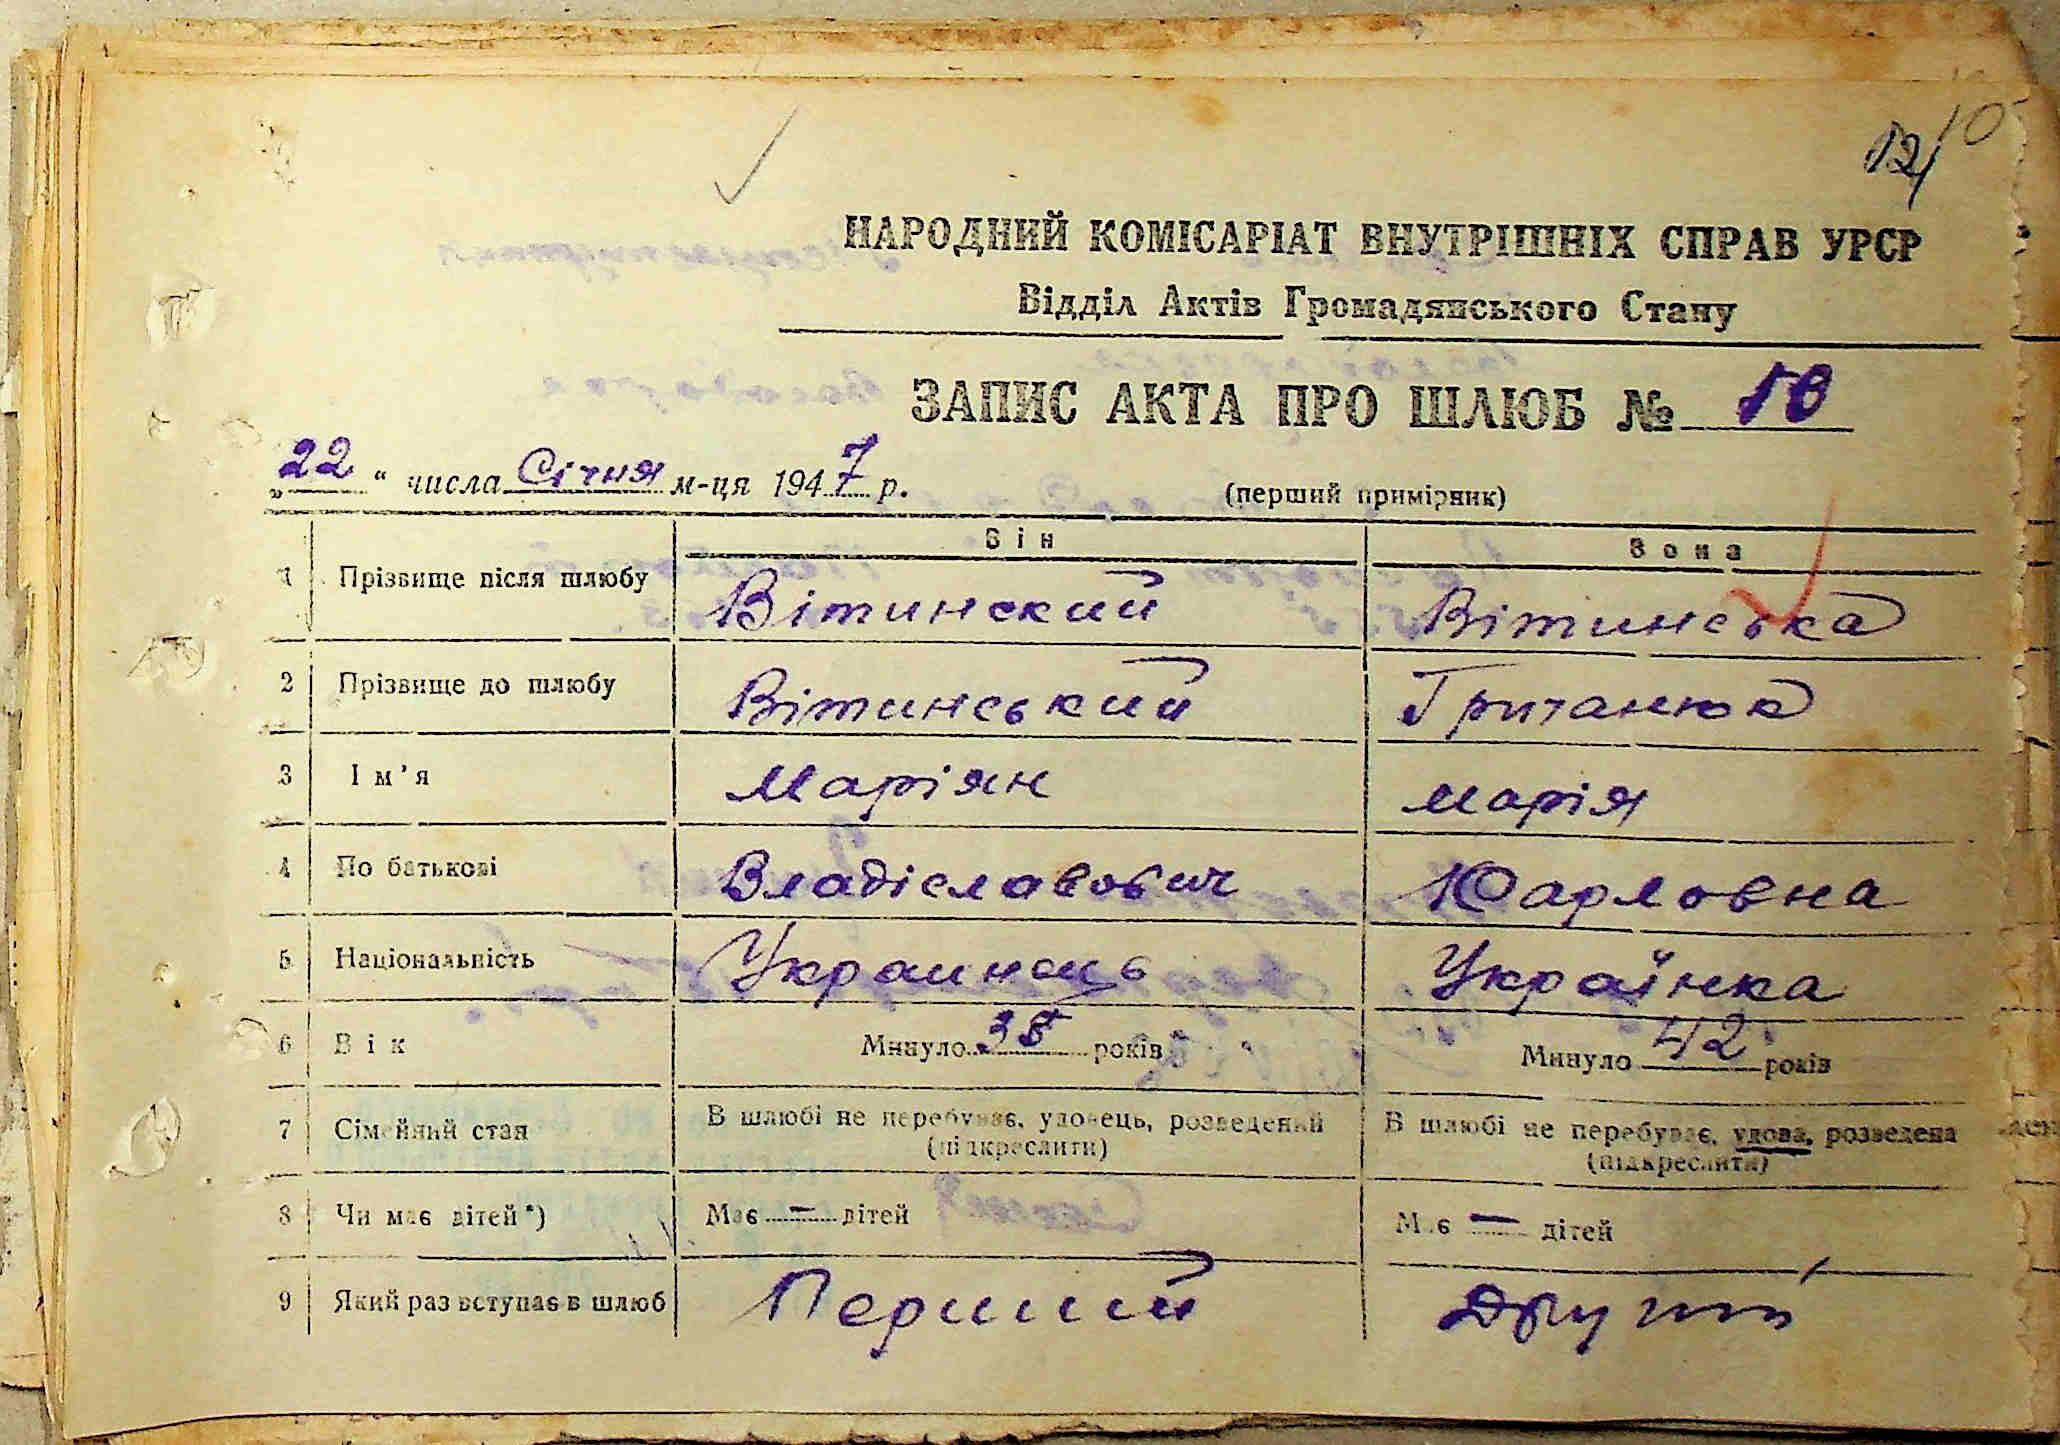 10
12/
НАРОДНИЙ КОМІСАРІАТ ВНУТРІШНІХ СПРАВ УРСР
Відділ Актів Громадянського Стану
ЗАПИС АКТА ПРО ШЛЮБ № 10
„22“ числа Січня м-ця 1947 р. (перший примірник)
Він Вона
1 Прізвище після шлюбу Вітинский Вітинська
2 Прізвище до шлюбу Вітинський
3 Ім'я Маріян Марія
4 По батькові Владіславович Карловна
5 Національність Украинець Українка
6 Вік Минуло 38 років Минуло 42 років
7 Сімейний стан В шлюбі не перебуває, удовець, розведений В шлюбі не перебуває, удова, розведена
(підкреслити) (підкреслити)
8 Чи має дітей*) Має — дітей Має — дітей
9 Який раз вступає в шлюб Перший Другий